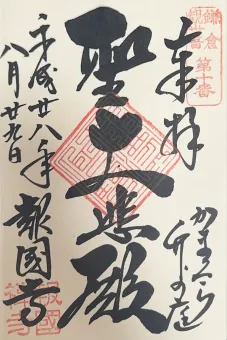 鎌倉
観世音
第十番
奉拝
かまくら
竹の庭
聖大悲殿
平成廿八年
八月廿九日
報國寺
報國
禅寺